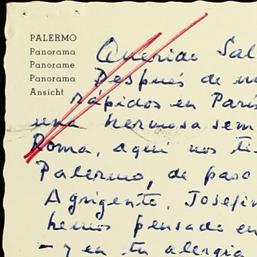 PALERMO
Panorama
Panorame
Panorama
Ansicht
Querido Sal
Después de
rápidos en París
una hermosa sem
Roma, aquí nos ti
Palermo, de paso
Agrigente, Josefin
hemos pensado en
- y en tu alergia